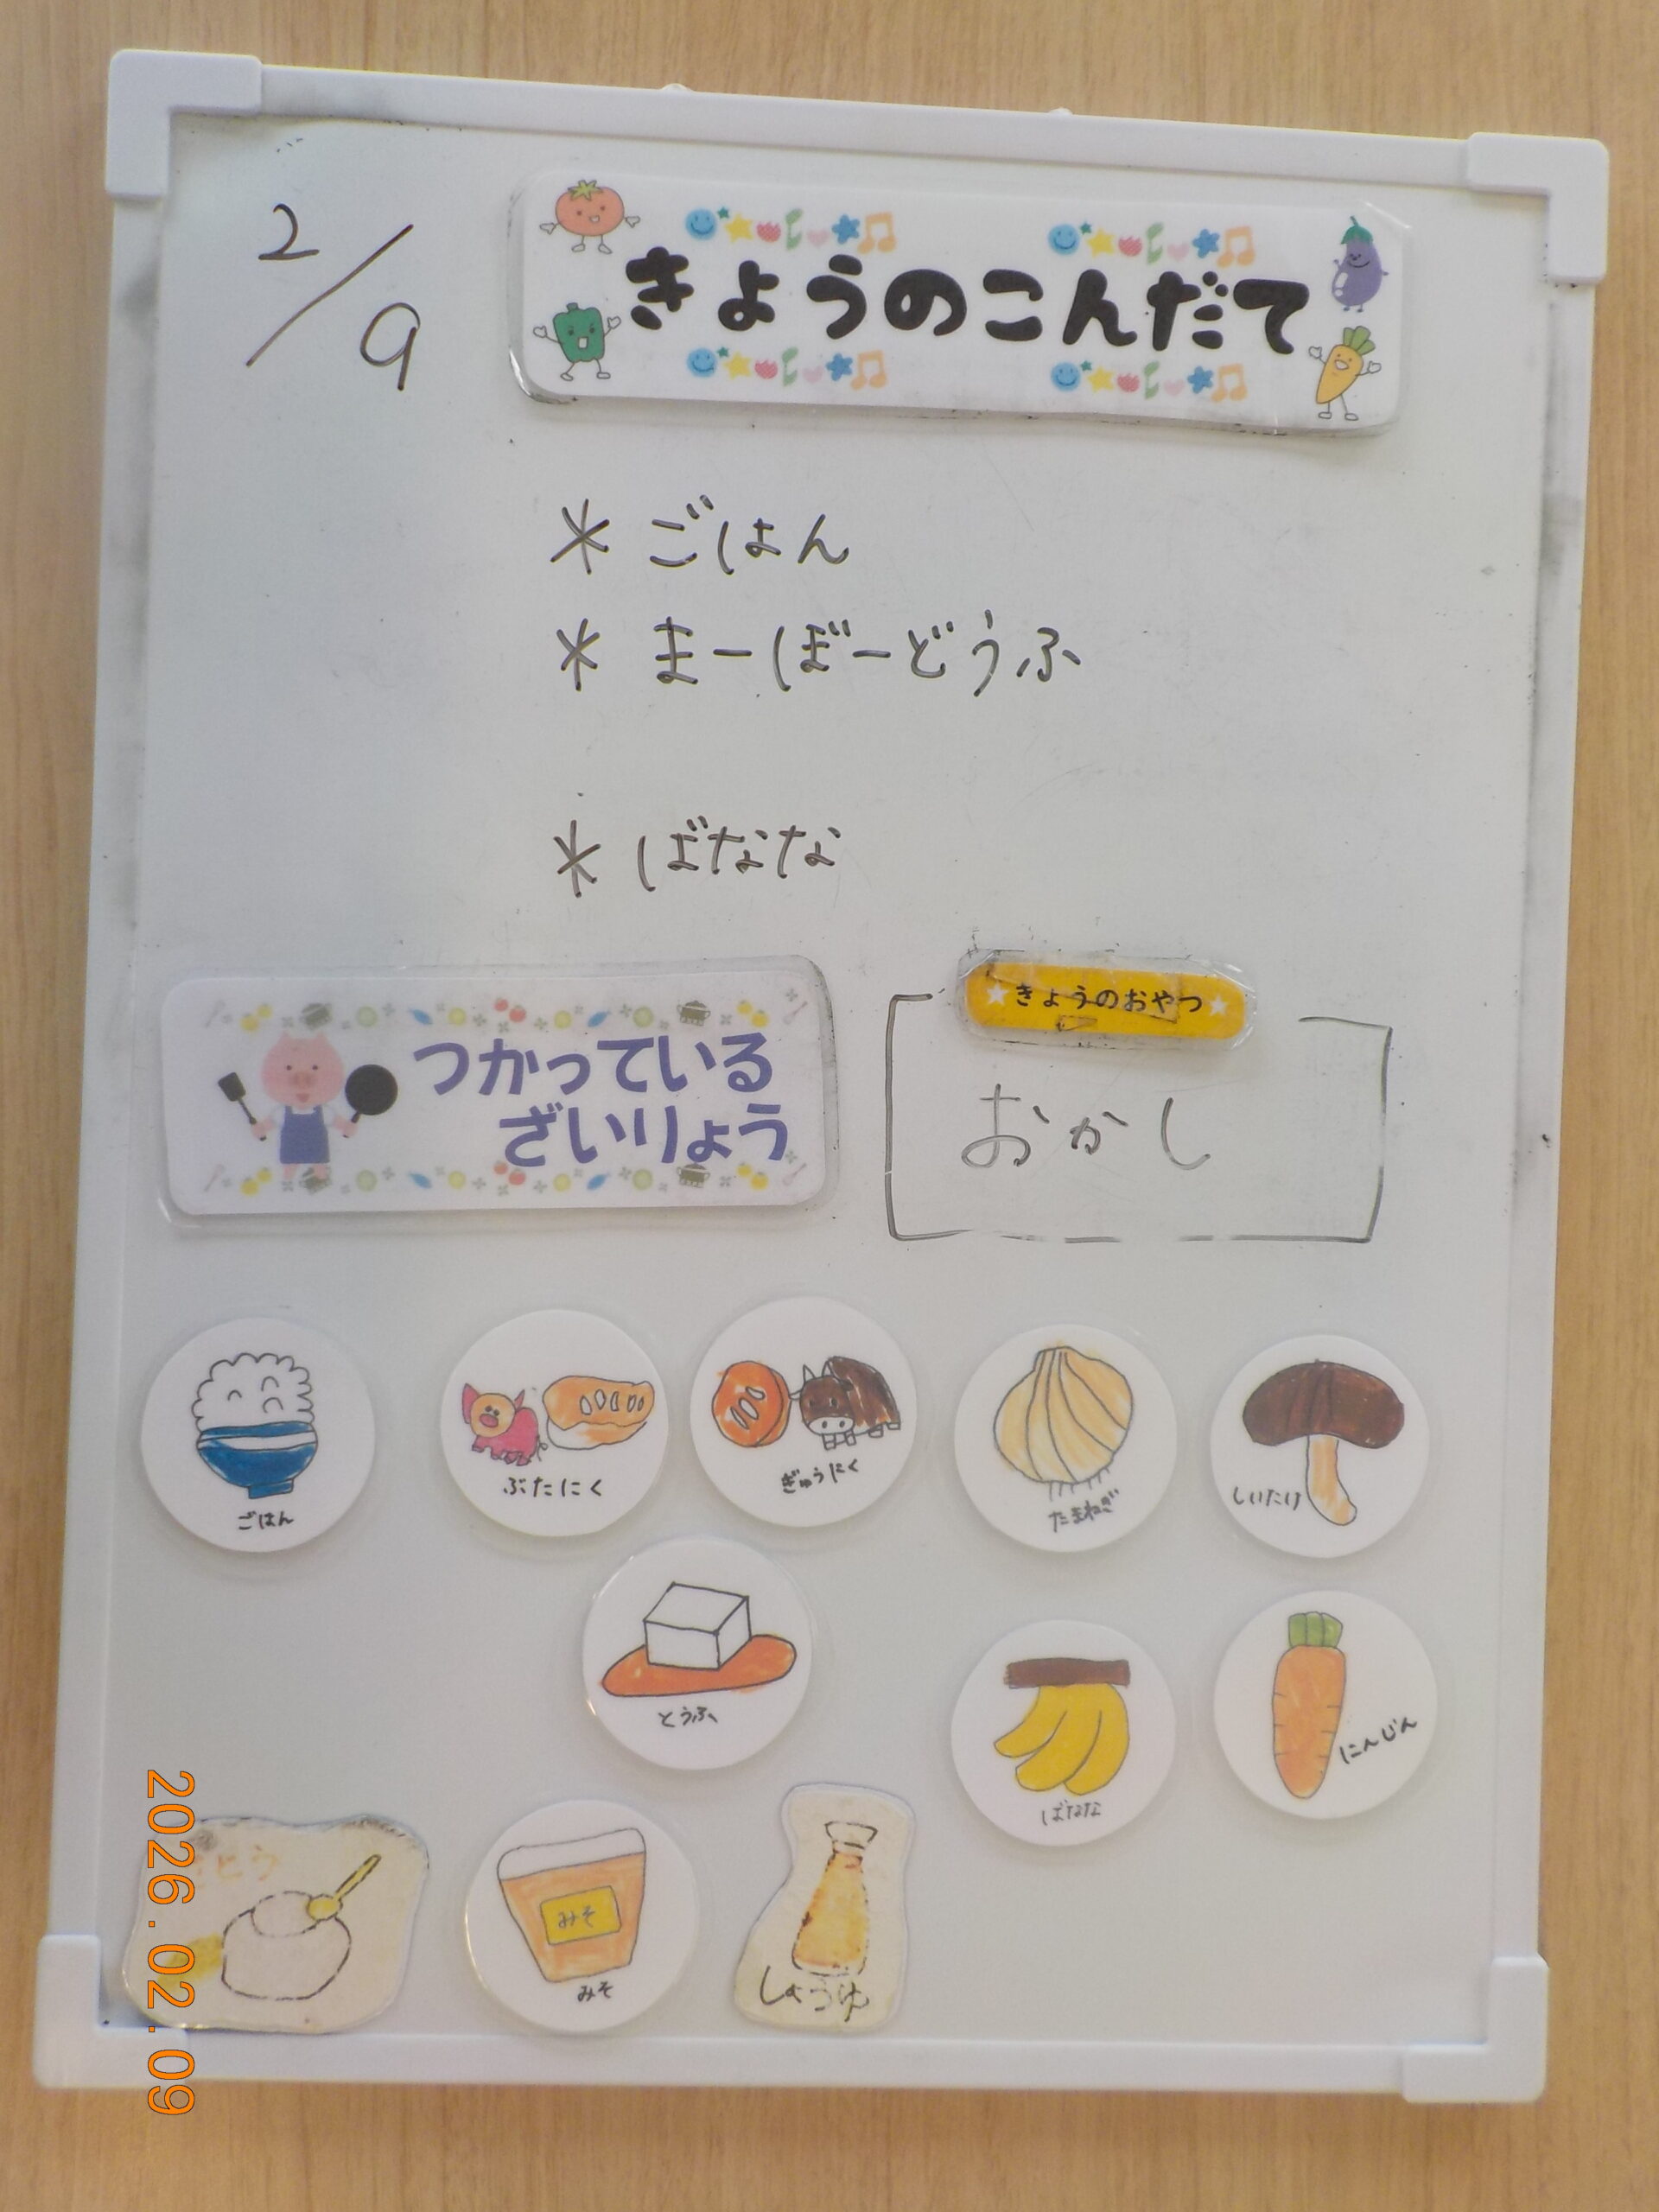 2/9
きょうのこんだて
* ごはん
* まーぼーどうふ
* ばなな
つかっている
ざいりょう
きょうのおやつ
おかし
ごはん
ぶたにく
ぎゅうにく
たまねぎ
しいたけ
とうふ
ばなな
にんじん
みそ
みそ
しょうゆ
2026.02.09